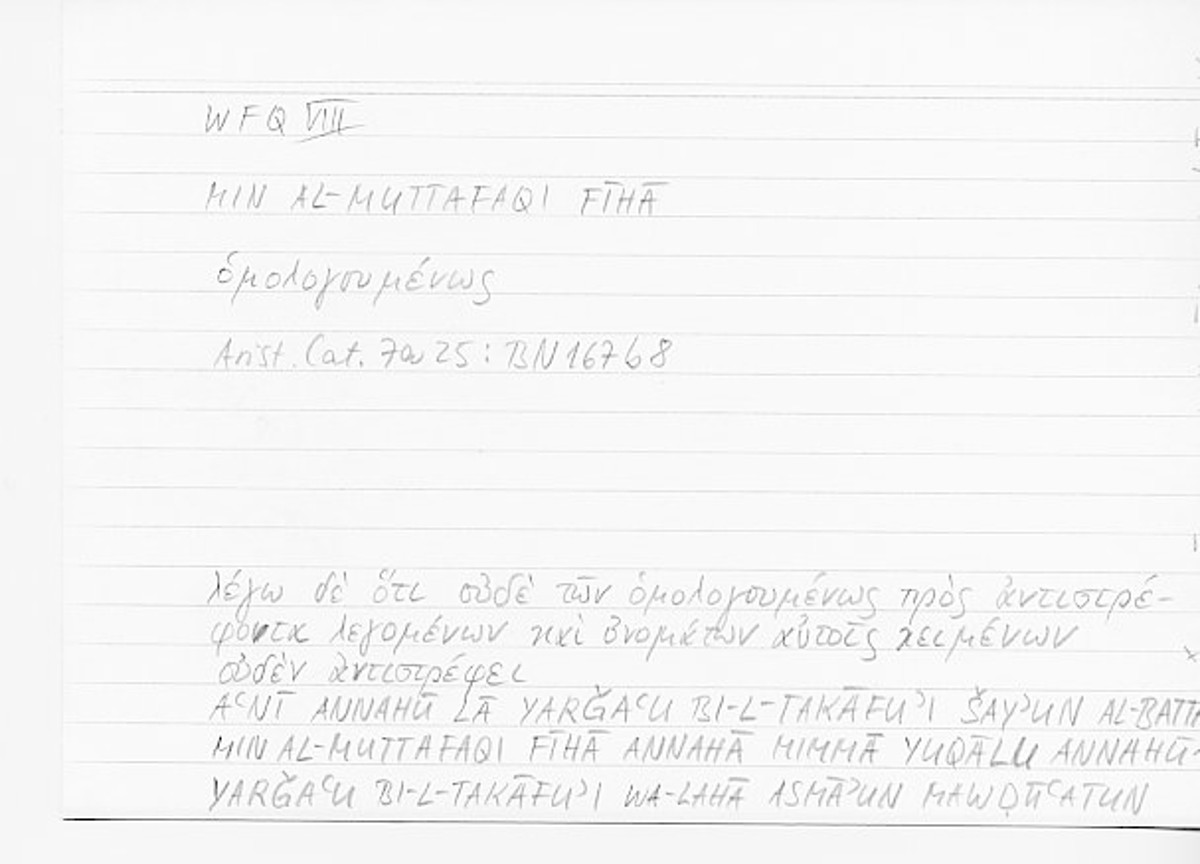 WFQ VIII
MIN AL-MUTTAFAQI FĪHĀ
ὁμολογουμένως
Arist. Cat. 7a25: BN 167b8
λέγω δὲ ὅτι οὐδὲ τῶν ὁμολογουμένως πρὸς ἀντιστρέ-
φοντα λεγομένων καὶ ὀνομάτων αὐτοῖς κειμένων
οὐδὲν ἀντιστρέφει
AʿNĪ ANNAHŪ LĀ YARǦAʿU BI-L-TAKĀFUʾI ŠAYʾUN AL-BATTA
MIN AL-MUTTAFAQI FĪHĀ ANNAHĀ MIMMĀ YUQĀLU ANNAHŪ
YARǦAʿU BI-L-TAKĀFUʾI WA-LAHĀ ASMĀʾUN MAWḌŪʿATUN